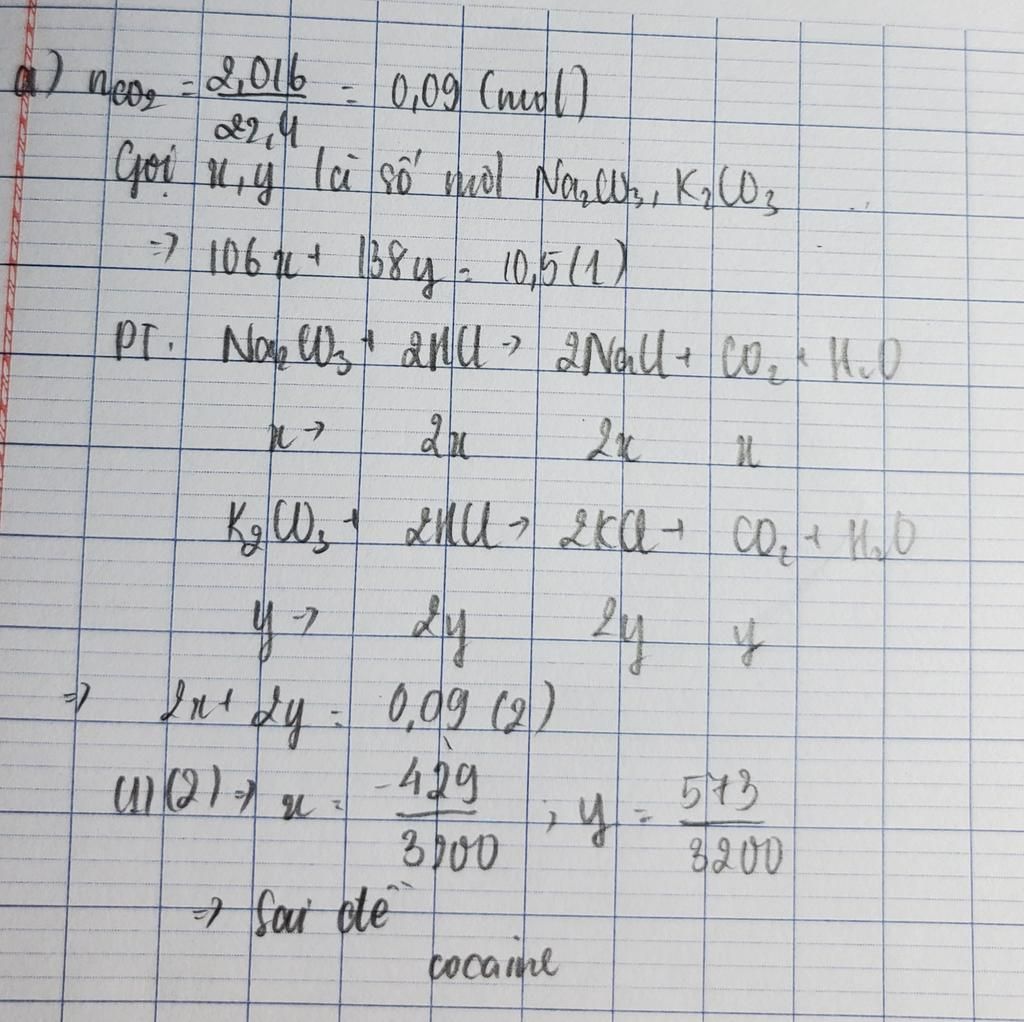 a) nCO₂ = 2,016/22,4 = 0,09 (mol)
Gọi x, y là số mol Na₂CO₃, K₂CO₃
=> 106x + 138y = 10,5 (1)
PT. Na₂CO₃ + 2HCl → 2NaCl + CO₂ + H₂O
x → 2x 2x x
K₂CO₃ + 2HCl → 2KCl + CO₂ + H₂O
y → 2y 2y y
=> 2x + 2y = 0,09 (2)
(1)(2) => x = -429/3200 ; y = 573/3200
=> Sai đề
cocaine